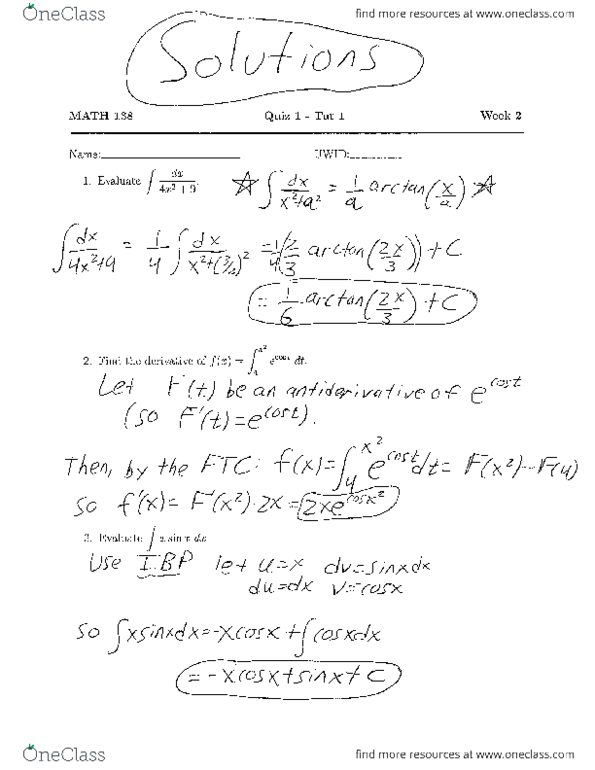 OneClass
find more resources at www.oneclass.com
Solutions
MATH 138 Quiz 1 - Tut 1 Week 2
Name: UWID:
1. Evaluate ∫ dx/(4x²+9). ☆ ∫ dx/(x²+a²) = 1/a arctan(x/a) ☆
∫ dx/(4x²+9) = 1/4 ∫ dx/(x²+(3/2)²) = 1/4(2/3 arctan(2x/3)) + C
= 1/6 arctan(2x/3) + C
2. Find the derivative of f(x) = ∫₄^(x²) e^(cos t) dt.
Let F(t) be an antiderivative of e^(cost)
(so F'(t)=e^(cost)).
Then, by the FTC: f(x)=∫₄^(x²) e^(cost)dt= F(x²)-F(4)
so f'(x)= F'(x²)·2x= 2xe^(cosx²)
3. Evaluate ∫ x sin x dx
Use IBP let u=x dv=sinxdx
du=dx v=-cosx
so ∫xsinxdx=-xcosx+∫cosxdx
=-xcosx+sinx+C
OneClass
find more resources at www.oneclass.com